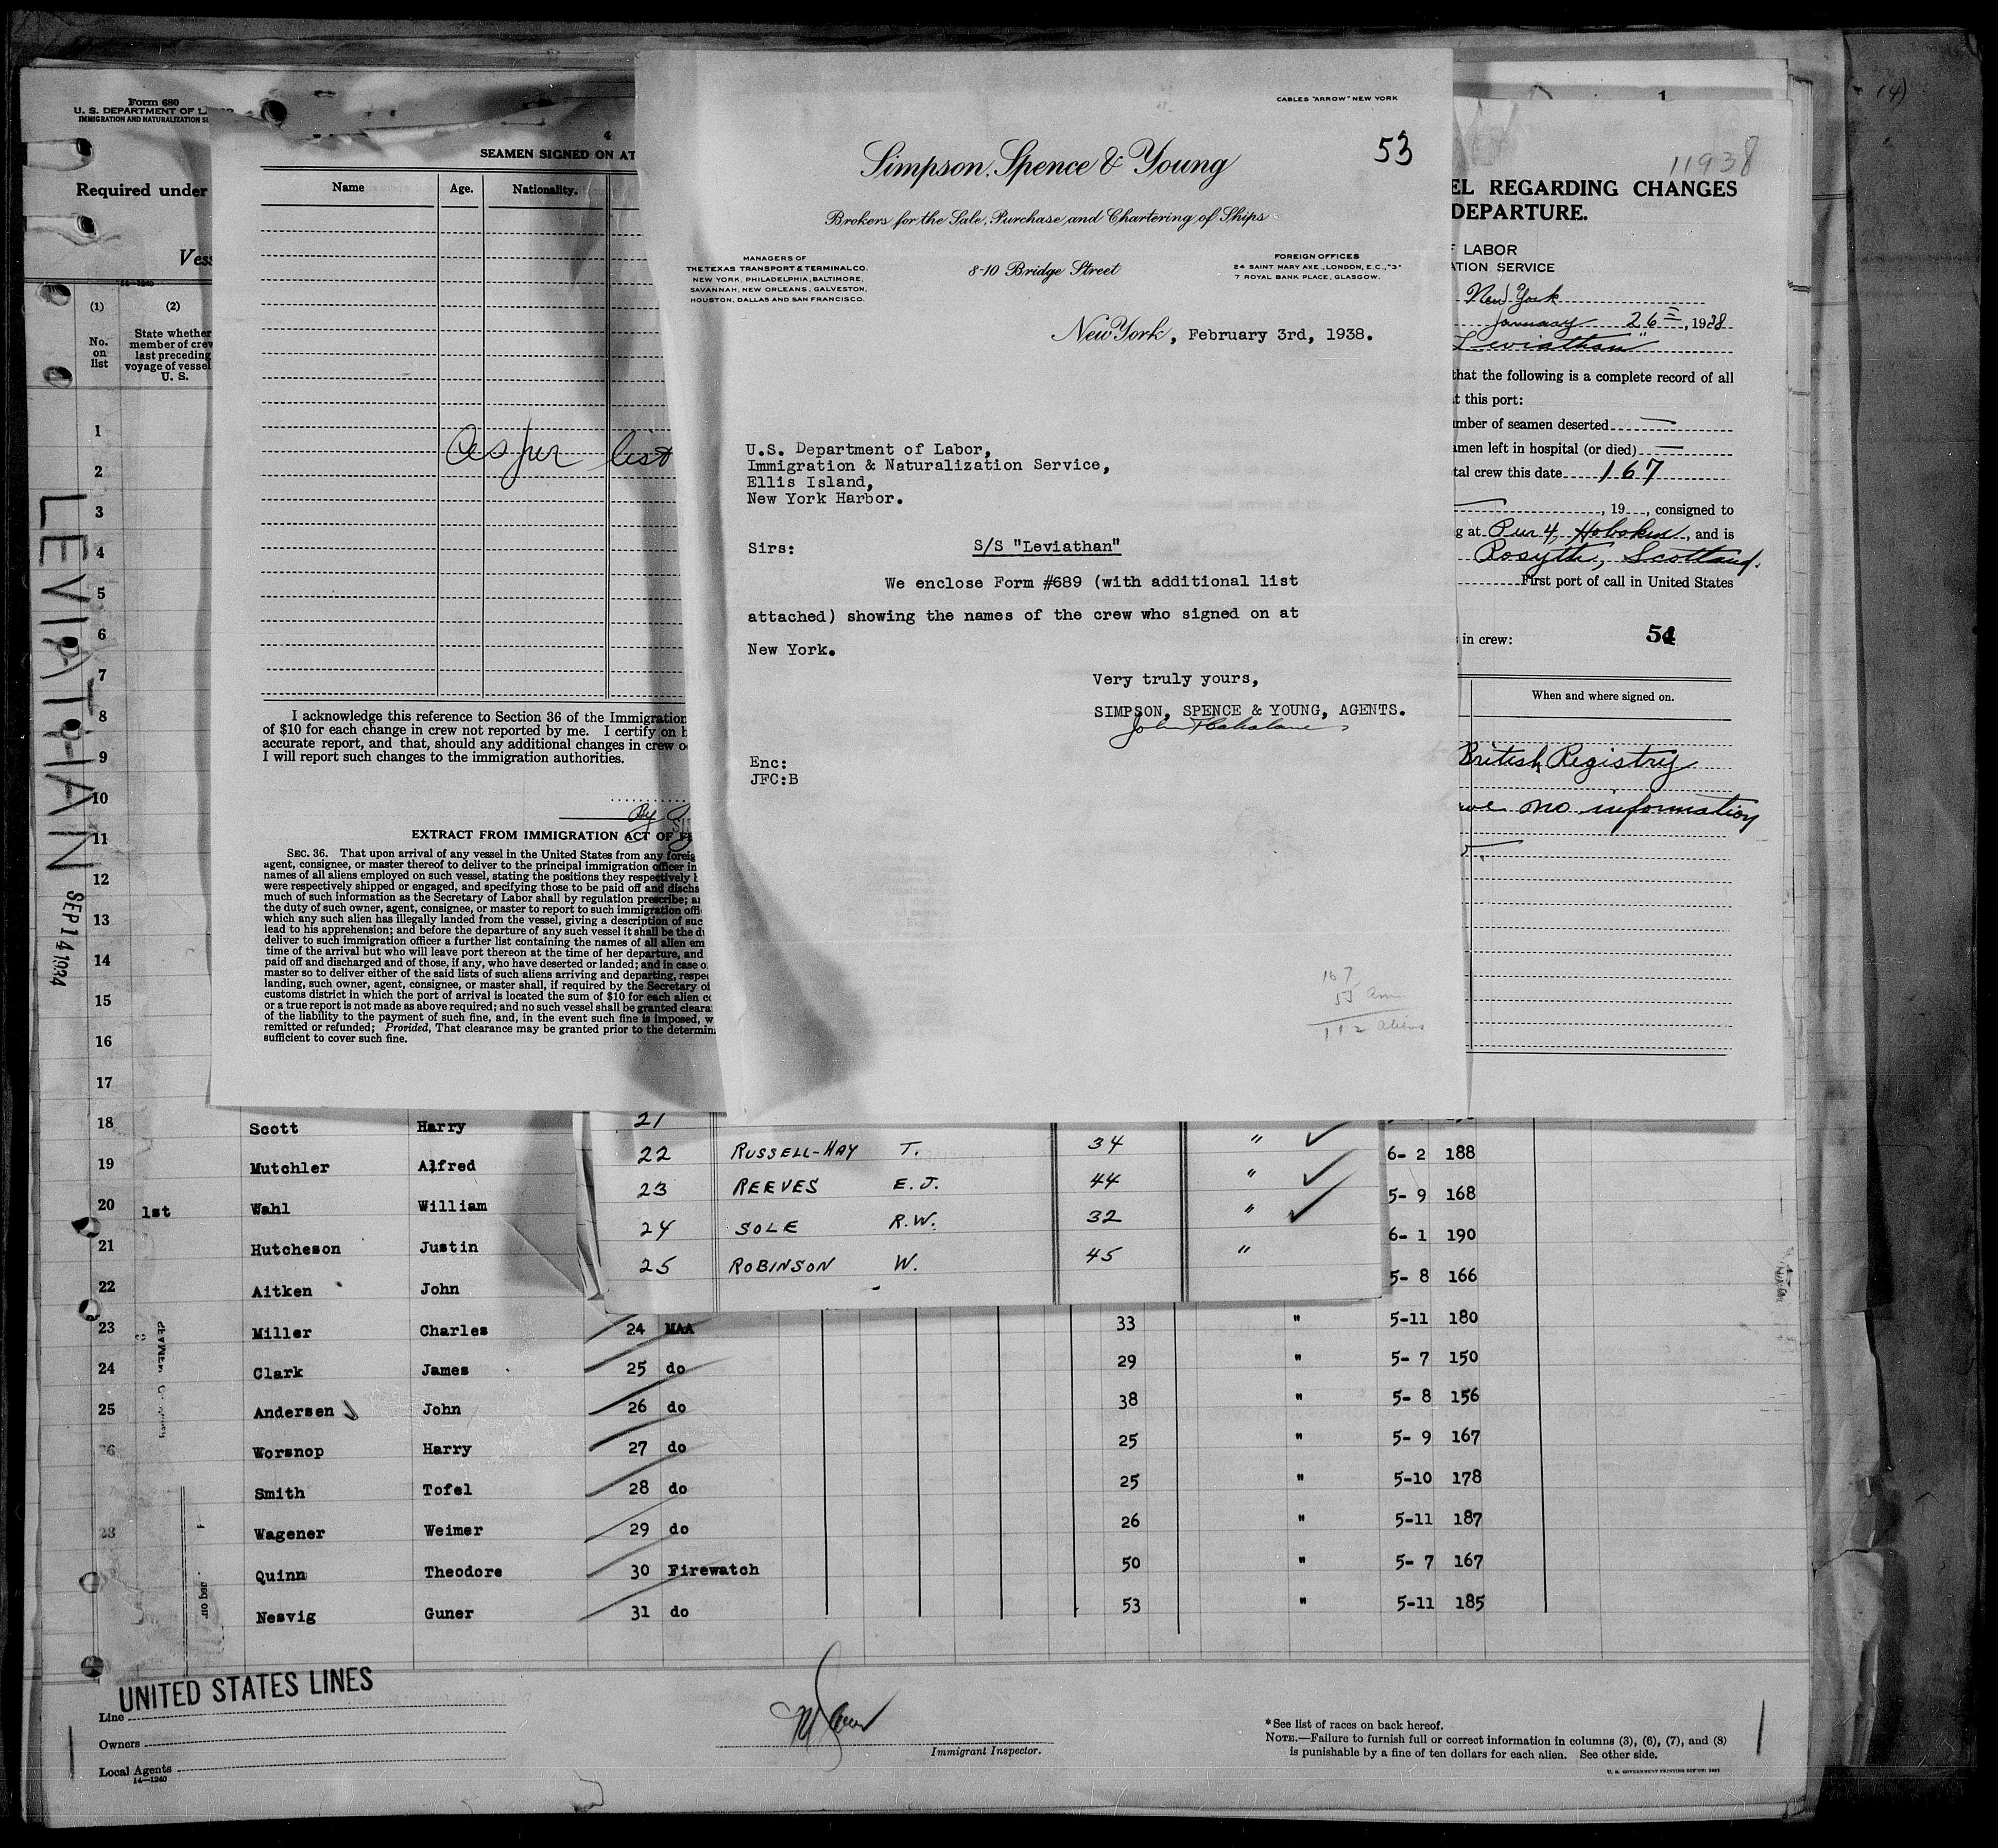 Form 680
U. S. DEPARTMENT OF L
IMMIGRATION AND NATURALIZATION S
Required under
Vess
14-1240
(1)
(2)
No. on list
State whether member of crew last preceding voyage of vessel U. S.
1
2
3
4
5
6
7
8
9
10
11
12
13
14
15
16
17
18
19
20
21
22
23
24
25
LEVIATHAN
SEP 14 1934
4
SEAMEN SIGNED ON AT
Name
Age.
Nationality.
As per list
I acknowledge this reference to Section 36 of the Immigration
of $10 for each change in crew not reported by me. I certify on h
accurate report, and that, should any additional changes in crew o
I will report such changes to the immigration authorities.
By
EXTRACT FROM IMMIGRATION ACT OF FE
SEC. 36. That upon arrival of any vessel in the United States from any foreig
agent, consignee, or master thereof to deliver to the principal immigration officer in
names of all aliens employed on such vessel, stating the positions they respectively h
were respectively shipped or engaged, and specifying those to be paid off and discha
much of such information as the Secretary of Labor shall by regulation prescribe; a
the duty of such owner, agent, consignee, or master to report to such immigration offi
which any such alien has illegally landed from the vessel, giving a description of suc
lead to his apprehension; and before the departure of any such vessel it shall be the d
deliver to such immigration officer a further list containing the names of all alien em
time of the arrival but who will leave port thereon at the time of her departure, and
paid off and discharged and of those, if any, who have deserted or landed; and in case o
master so to deliver either of the said lists of such aliens arriving and departing, respec
landing, such owner, agent, consignee, or master shall, if required by the Secretary of
customs district in which the port of arrival is located the sum of $10 for each alien co
or a true report is not made as above required; and no such vessel shall be granted cleara
of the liability to the payment of such fine, and, in the event such fine is imposed, w
remitted or refunded; Provided, That clearance may be granted prior to the determin
sufficient to cover such fine.
CABLES "ARROW" NEW YORK
53
Simpson, Spence & Young
Brokers for the Sale, Purchase and Chartering of Ships
MANAGERS OF
THE TEXAS TRANSPORT & TERMINAL CO.
NEW YORK, PHILADELPHIA, BALTIMORE,
SAVANNAH, NEW ORLEANS, GALVESTON,
HOUSTON, DALLAS AND SAN FRANCISCO.
8-10 Bridge Street
FOREIGN OFFICES
24 SAINT MARY AXE, LONDON, E.C., "3"
7 ROYAL BANK PLACE, GLASGOW.
New York, February 3rd, 1938.
U.S. Department of Labor,
Immigration & Naturalization Service,
Ellis Island,
New York Harbor.
Sirs: S/S "Leviathan"
We enclose Form #689 (with additional list
attached) showing the names of the crew who signed on at
New York.
Very truly yours,
SIMPSON, SPENCE & YOUNG, AGENTS.
Enc:
JFC:B
167
55 Am
112 aliens
1
11938
EL REGARDING CHANGES
DEPARTURE.
F LABOR
ATION SERVICE
New York
January 26th, 1938
Leviathan
that the following is a complete record of all
t this port:
umber of seamen deserted —
amen left in hospital (or died) —
tal crew this date 167
, 19 , consigned to
g at Pier 4, Hoboken, and is
Rosyth, Scotland.
First port of call in United States
s in crew:
54
When and where signed on.
British Registry
no information
21
22 RUSSELL-HAY T. 34 "
23 REEVES E.J. 44 "
24 SOLE R.W. 32 "
25 ROBINSON W. 45 "
Scott Harry
Mutchler Alfred 6- 2 188
1st Wahl William 5- 9 168
Hutcheson Justin 6- 1 190
Aitken John 5- 8 166
Miller Charles 24 MAA 33 " 5-11 180
Clark James 25 do 29 " 5- 7 150
Andersen John 26 do 38 " 5- 8 156
Worsnop Harry 27 do 25 " 5- 9 167
Smith Tofel 28 do 25 " 5-10 178
Wagener Weimer 29 do 26 " 5-11 187
Quinn Theodore 30 Firewatch 50 " 5- 7 167
Nesvig Guner 31 do 53 " 5-11 185
UNITED STATES LINES
Line
Owners
Local Agents
14-1240
Immigrant Inspector.
*See list of races on back hereof.
NOTE.—Failure to furnish full or correct information in columns (3), (6), (7), and (8)
is punishable by a fine of ten dollars for each alien. See other side.